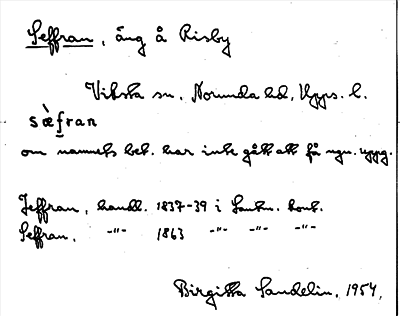 Seffran, äng å Risby
Viksta sn. Norunda hd, Upps. l.
sæ̀fran
om namnets bet. har inte gått att få ngn. uppg.
Jeffran, handl. 1837-39 i Lantm. kont.
Seffran, -"- 1863 -"- -"- -"-
Birgitta Sandelin, 1954,